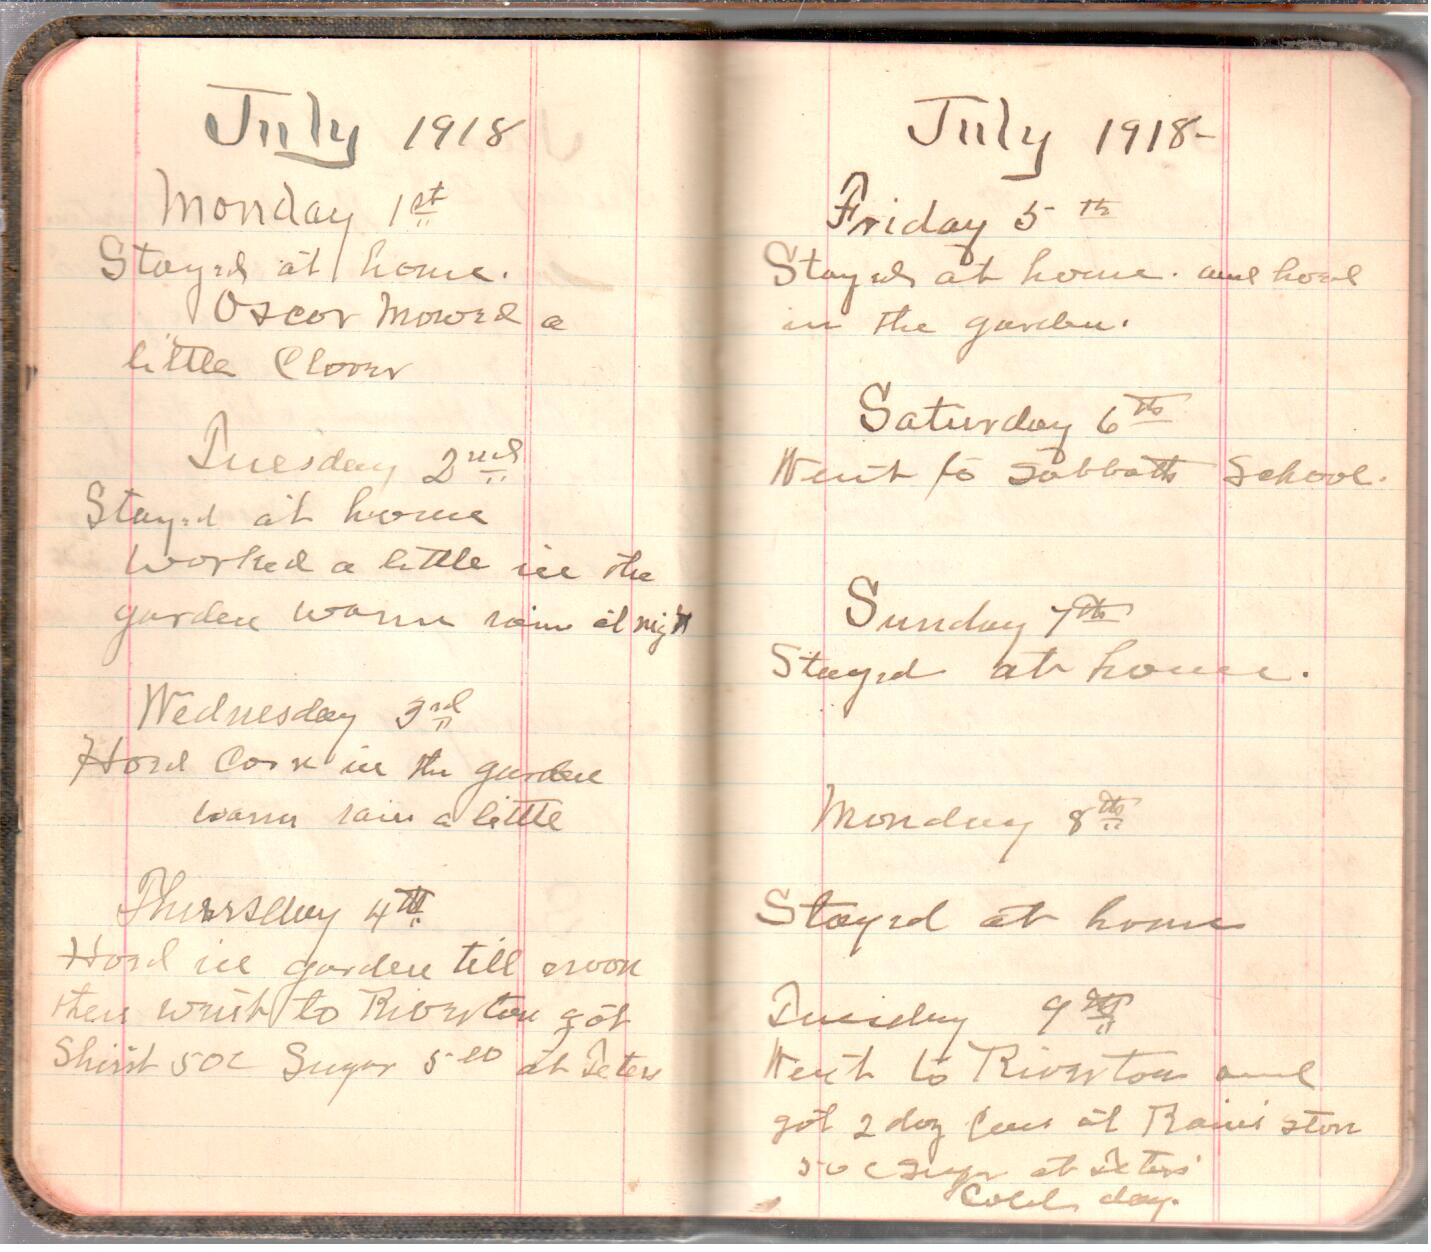 July 1918
Monday 1st
Stayed at home.
Oscar Mowed a
little Clover
Tuesday 2nd
Stayed at home
worked a little in the
garden warm rain at night
Wednesday 3rd
Hoed Corn in the garden
warm rain a little
Thursday 4th
Hoed in garden till noon
then went to Riverton got
Shirt 50c Sugar 5 00 at Teters
July 1918-
Friday 5 th
Stayed at home. and hoed
in the garden.
Saturday 6th
Went to Sabbath School.
Sunday 7th
Stayed at home.
Monday 8th
Stayed at home
Tuesday 9th
Went to Riverton and
got 2 doz at store
50c Sugar at Teters'
Cold day.